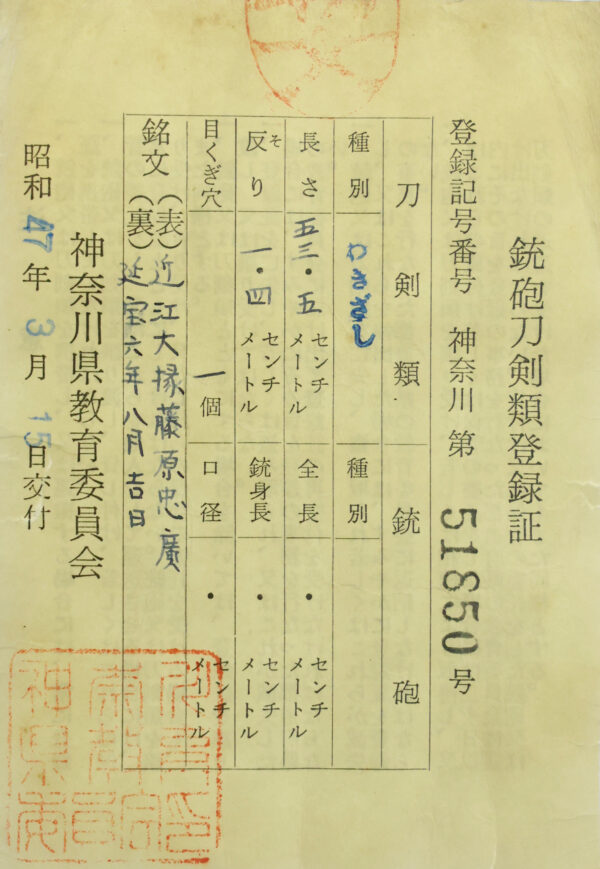 銃砲刀剣類登録証
登録記号番号 神奈川 第 51850 号
刀剣類 銃砲
種別 わきざし 種別
長さ 五三・五 センチメートル 全長 ・ センチメートル
反り そ 一・四 センチメートル 銃身長 ・ センチメートル
目くぎ穴 一個 口径 ・ センチメートル
銘文 (表) 近江大掾藤原忠廣
(裏) 延宝六年八月吉日
神奈川県教育委員会
昭和 47年 3月 15日交付